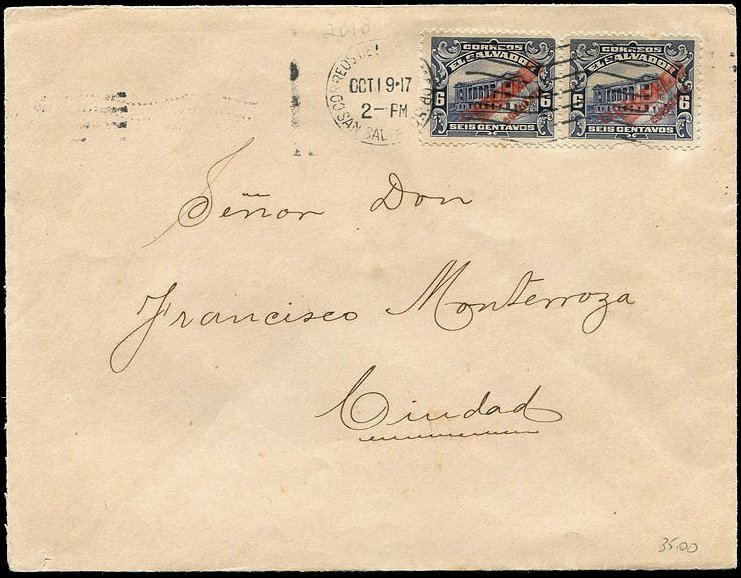 2018
CORREOS DE
OCT 19·17
2—PM
SAN SAL
CORREOS
EL SALVADOR
6 6
SEIS CENTAVOS
CORREOS
EL SALVADOR
6 6
SEIS CENTAVOS
Señor Don
Francisco Monterroza
Ciudad
35.00